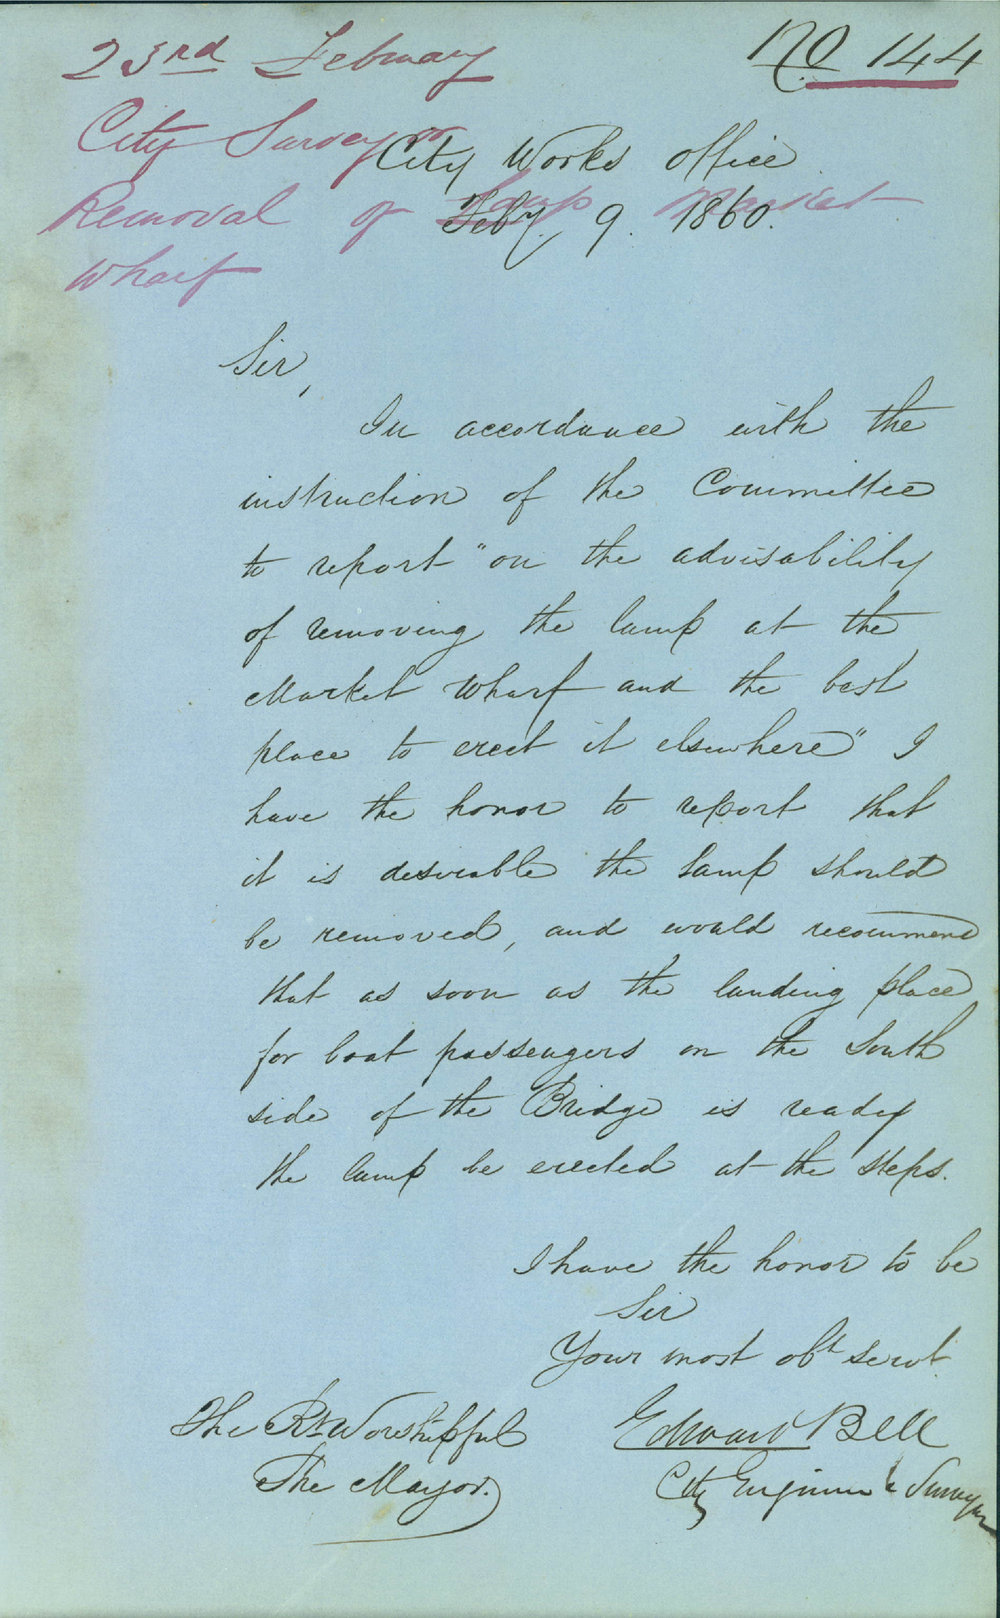 No 144
23rd February
City Surveyor
Removal of Lamp Market
Wharf
City Works Office
Feby. 9. 1860.
Sir,
In accordance with the
instruction of the Committee
to report "on the advisability
of removing the lamp at the
Market Wharf and the best
place to erect it elsewhere" I
have the honor to report that
it is desirable the lamp should
be removed, and would recommend
that as soon as the landing place
for boat passengers on the South
side of the Bridge is ready
the lamp be erected at the steps.
I have the honor to be
Sir
Your most obt servt
Edward Bell
City Engineer & Surveyor
The Rt Worshipful
The Mayor.